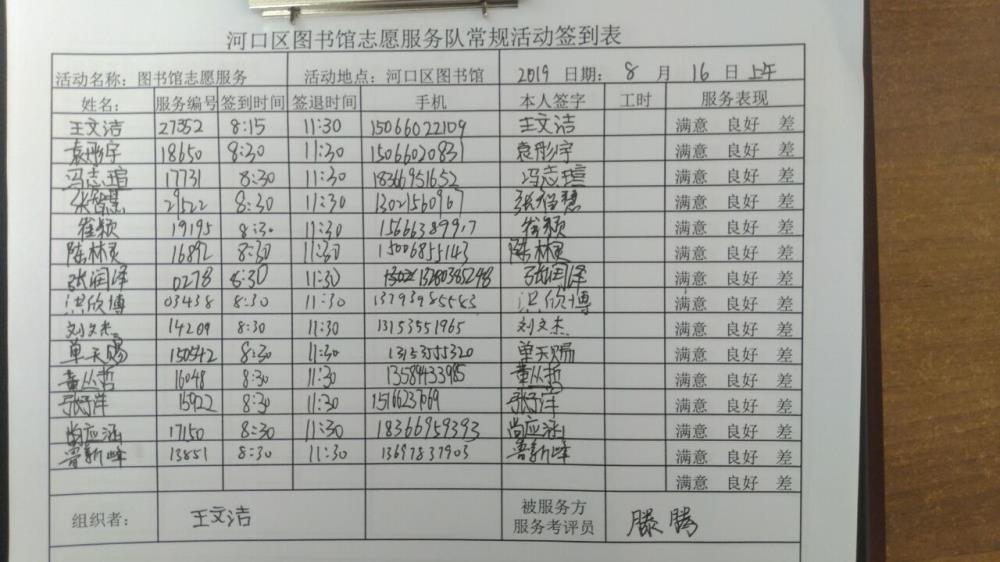 河口区图书馆志愿服务队常规活动签到表
活动名称：图书馆志愿服务 活动地点：河口区图书馆 2019 日期：8 月 16 日 上午
姓名： 服务编号 签到时间 签退时间 手机 本人签字 工时 服务表现
王文洁 27352 8:15 11:30 15066022109 王文洁 满意 良好 差
袁彤宇 18650 8:30 11:30 15066020831 袁彤宇 满意 良好 差
冯志瑄 17731 8:30 11:30 18366951652 冯志瑄 满意 良好 差
张智慧 21522 8:30 11:30 13021560967 张智慧 满意 良好 差
崔颖 19195 8:30 11:30 15663899917 崔颖 满意 良好 差
陈林灵 16892 8:30 11:30 15006855143 陈林灵 满意 良好 差
张润泽 0278 8:30 11:30 张润泽 满意 良好 差
洪欣博 03438 8:30 11:30 13793985583 洪欣博 满意 良好 差
刘文杰 14209 8:30 11:30 13153551965 刘文杰 满意 良好 差
单天赐 150542 8:30 11:30 13153555320 单天赐 满意 良好 差
董丛哲 16048 8:30 11:30 13589433985 董丛哲 满意 良好 差
张子洋 15922 8:30 11:30 张子洋 满意 良好 差
尚应涵 17150 8:30 11:30 18366959393 尚应涵 满意 良好 差
鲁新峰 13851 8:30 11:30 13697837903 鲁新峰 满意 良好 差
满意 良好 差
组织者： 王文洁 被服务方
服务考评员 滕腾